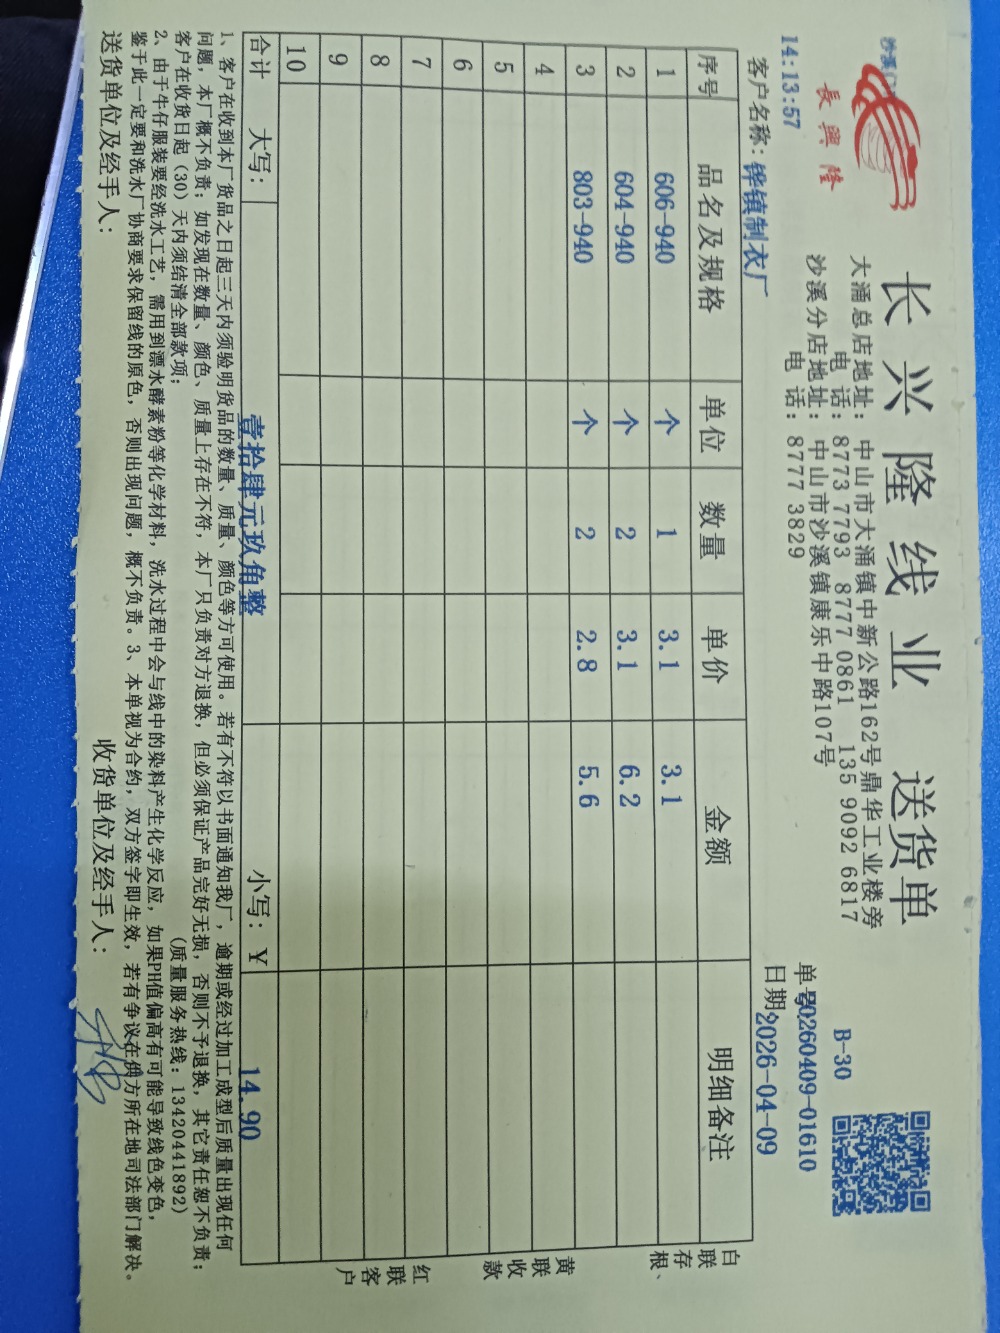 長興隆
长兴隆线业 送货单
大涌总店地址：中山市大涌镇中新公路162号鼎华工业楼旁
电 话：8773 7793 8777 0861 135 9092 6817
沙溪分店地址：中山市沙溪镇康乐中路107号
电 话：8777 3829
14:13:57
B-30
单号20260409-01610
日期2026-04-09
客户名称：铧镇制衣厂
序号 品名及规格 单位 数量 单价 金额 明细备注
1 606-940 个 1 3.1 3.1
2 604-940 个 2 3.1 6.2
3 803-940 个 2 2.8 5.6
4
5
6
7
8
9
10
合计 大写： 壹拾肆元玖角整 小写：￥ 14.90
白联存根、
黄联收款
红联客户
1、客户在收到本厂货品之日起三天内须验明货品的数量、质量、颜色等方可使用。若有不符以书面通知我厂，逾期或经过加工成型后质量出现任何
问题，本厂概不负责；如发现在数量、颜色、质量上存在不符，本厂只负责对方退换，但必须保证产品完好无损，否则不予退换，其它责任恕不负责；
客户在收货日起（30）天内须结清全部款项； (质量服务热线：13420441892)
2、由于牛仔服装要经洗水工艺，需用到漂水酵素粉等化学材料，洗水过程中会与线中的染料产生化学反应，如果PH值偏高有可能导致线色变色，
鉴于此一定要和洗水厂协商要求保留线的原色，否则出现问题，概不负责。3、本单视为合约，双方签字即生效，若有争议在供方所在地司法部门解决。
送货单位及经手人： 收货单位及经手人：